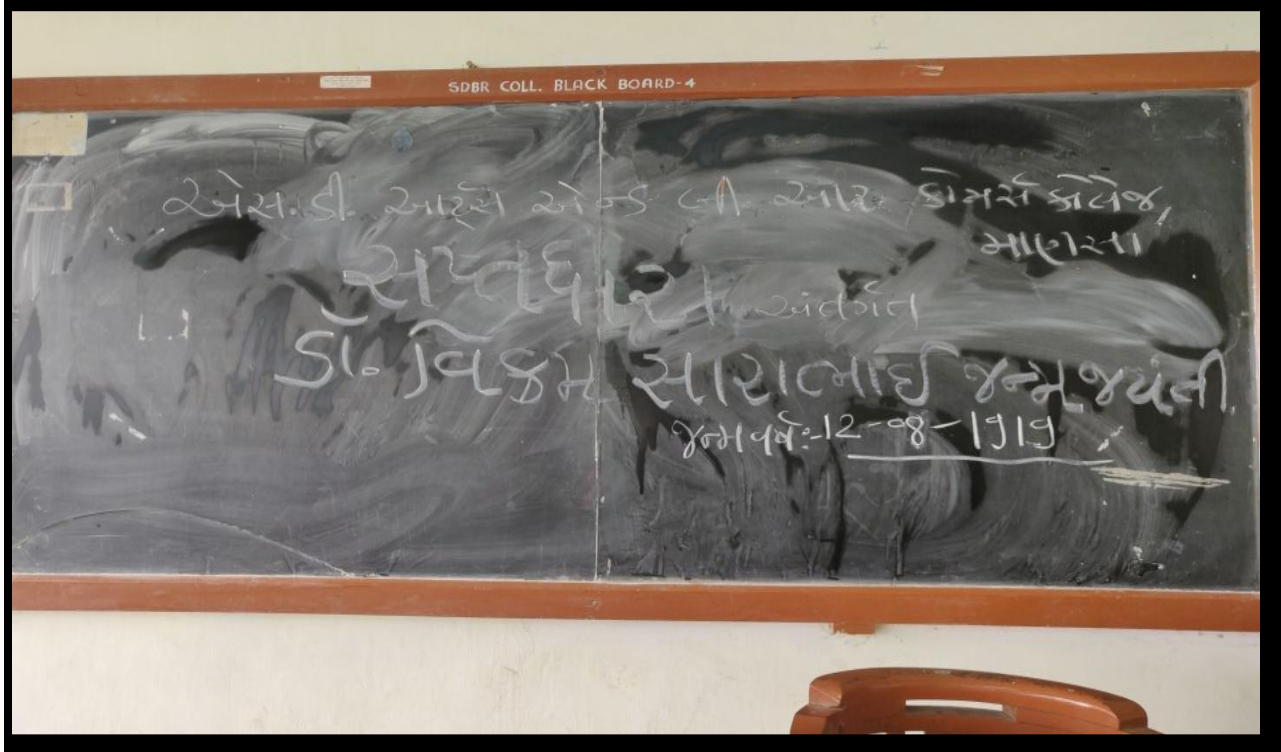 SDBR COLL. BLACK BOARD-4
એસ.ડી. આર્ટ્સ એન્ડ બી. આર. કોમર્સ કોલેજ,
માણસા
સપ્તધારા અંતર્ગત
ડૉ. વિક્રમ સારાભાઈ જન્મજયંતી.
જન્મવર્ષ:-12-08-1919